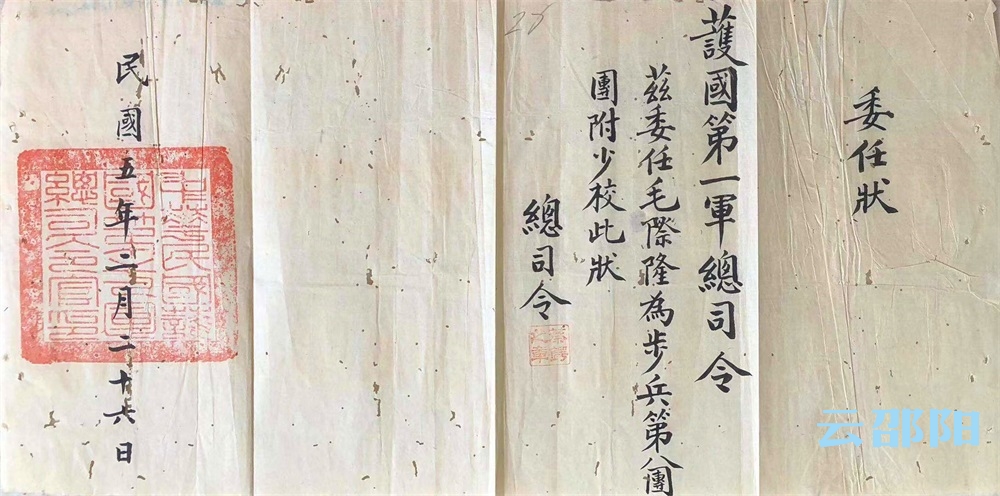 委任狀
護國第一軍總司令
茲委任毛際隆為步兵第八團
團附少校此狀
總司令
民國五年二月二十六日
28
云邵阳